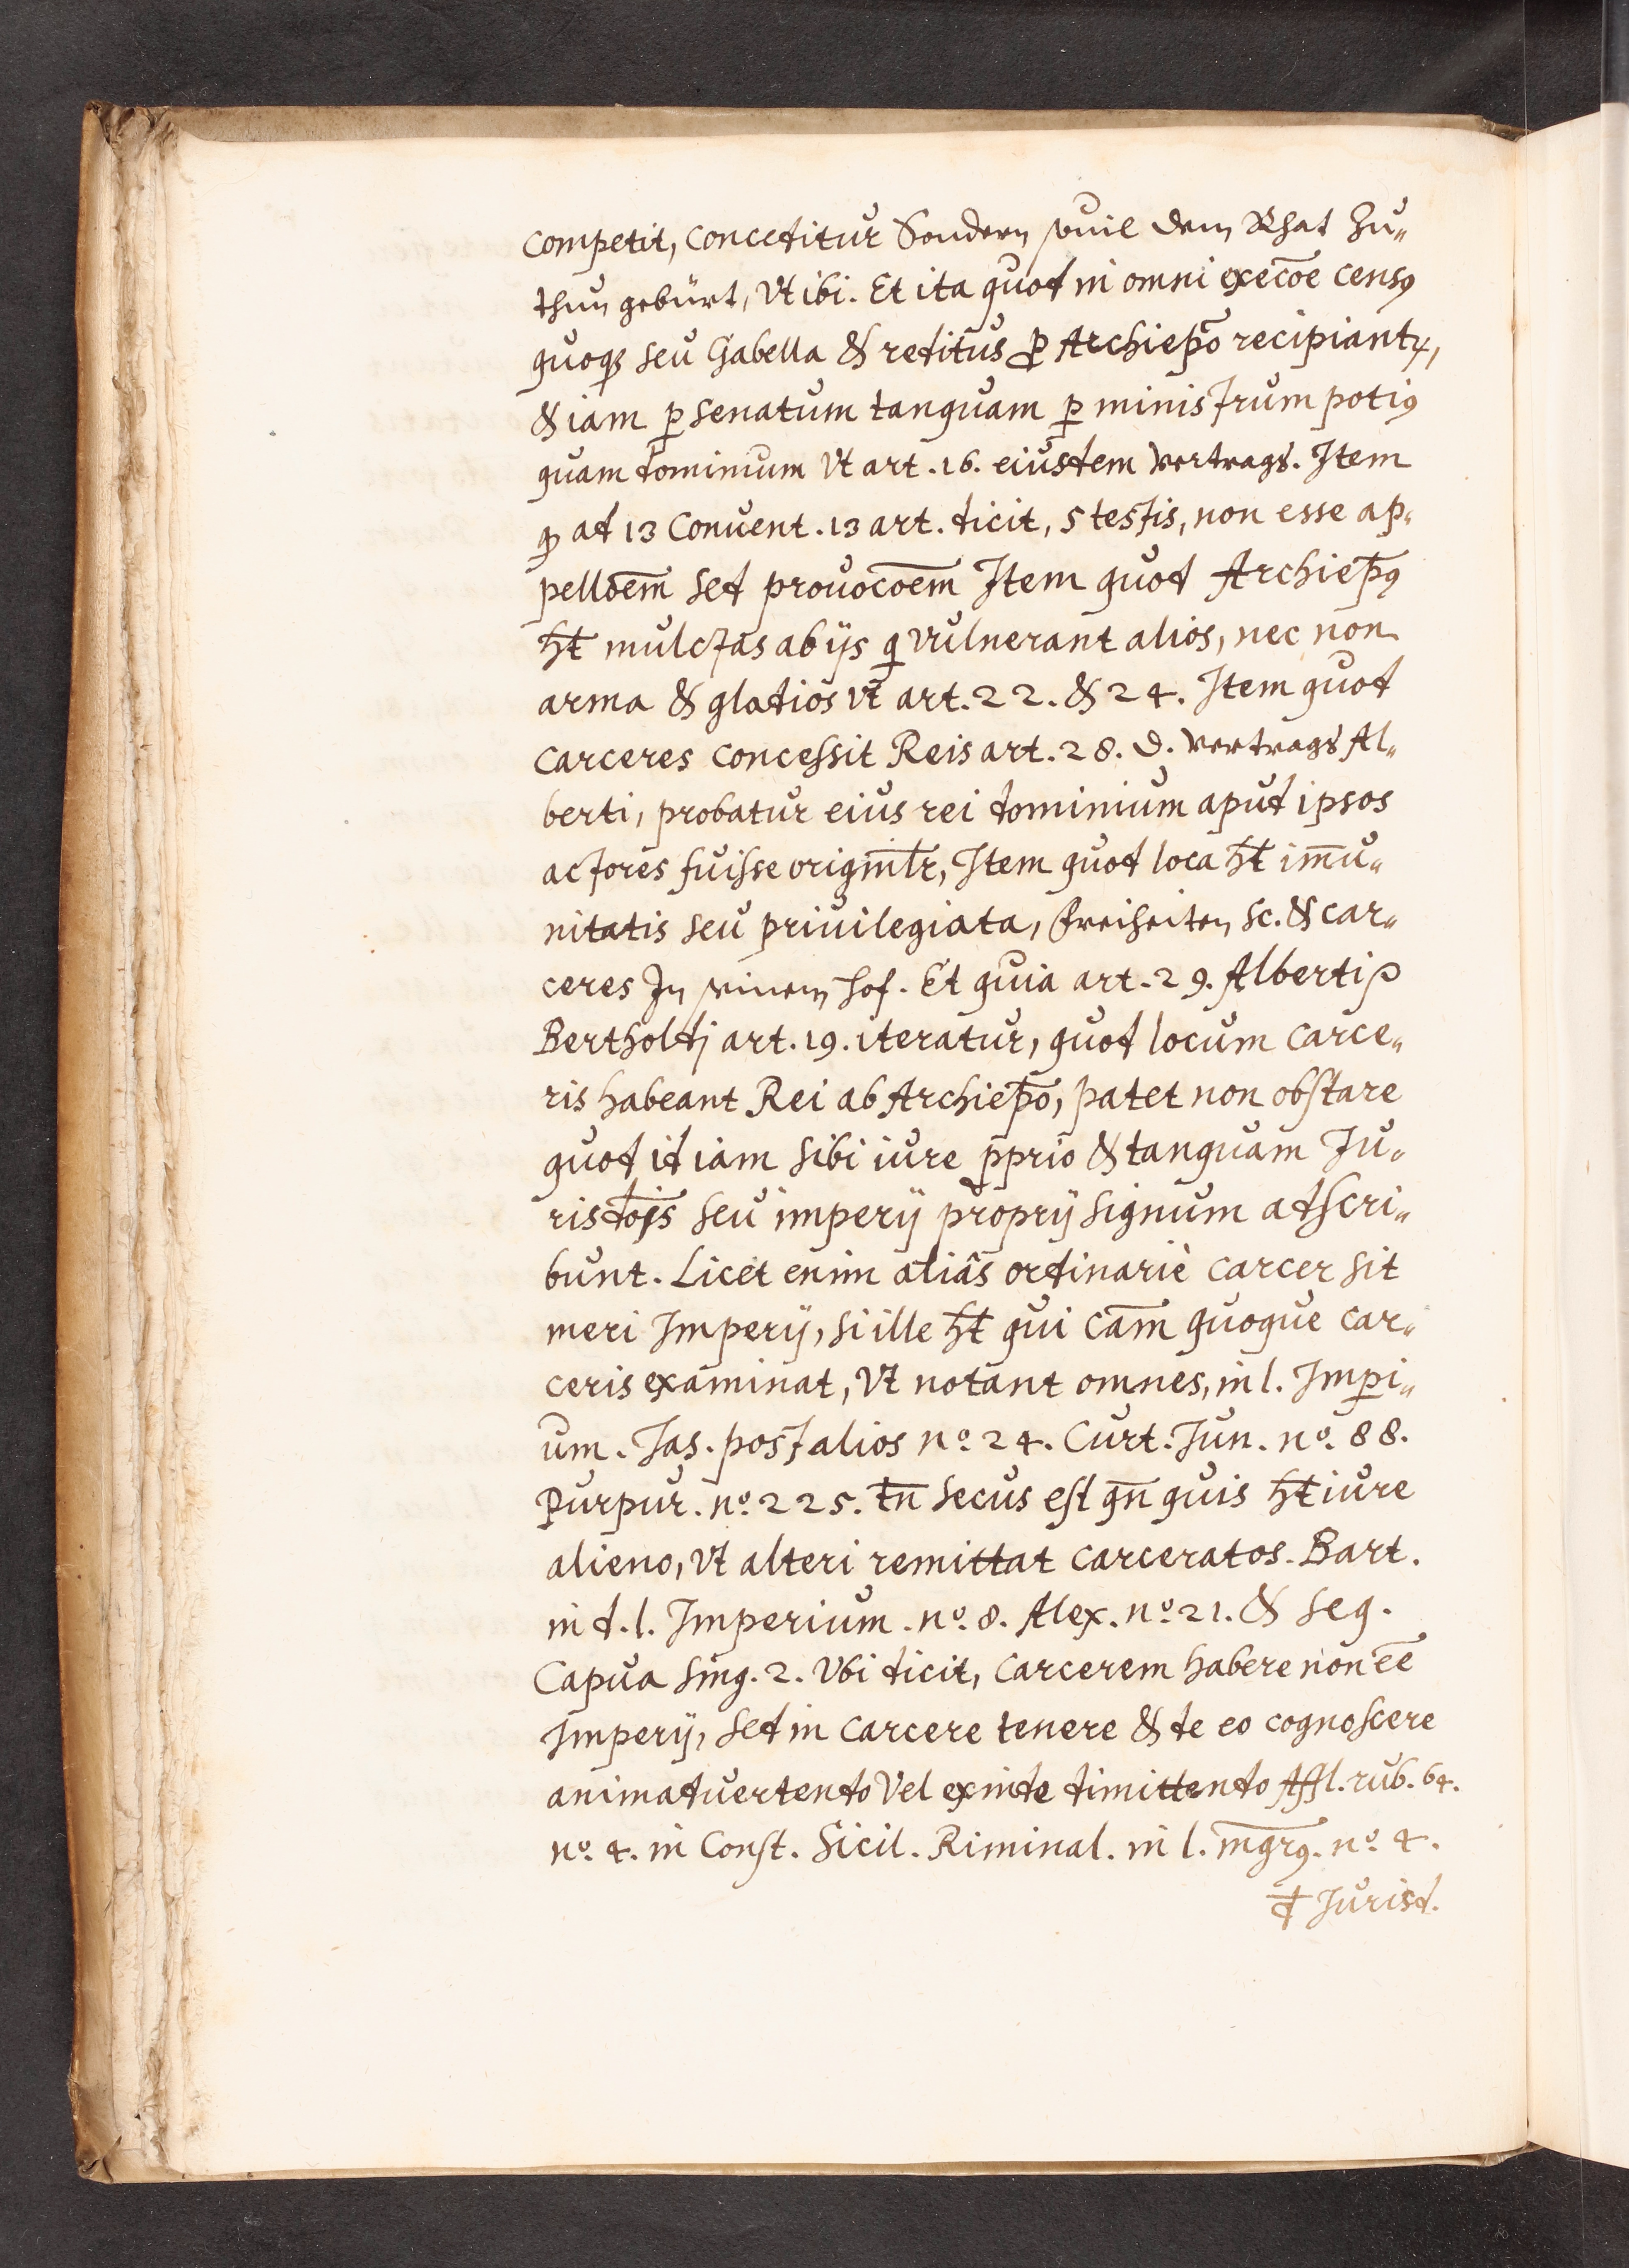 competit, conceditur Sondern souil dem Rhat zu„
thun gebürt, Vt ibi. Et ita quod in omni execōe censꝰ
quoqꝫ seu Gabella & reditus ꝓ Archiepō recipiantꝝ,
& iam ꝑ senatum tanquam ꝑ ministrum potiꝰ
quam dominum Vt art. 16. eiusdem Vertrags. Item
ꝙ ad 13 Conuent. 13 art. dicit, 5 testis, non esse ap„
pellōem̄ sed prouocōem̄ Item quod Archiep̄ꝰ
ht̄ mulctas ab ijs q vulnerant alios, nec non
arma & gladios vt art. 22. & 24. Item quod
carceres concessit Reis art. 28. d. Vertrags Al„
berti, probatur eius rei dominium apud ipsos
actores fuisse originl̄r, Item quod loca ht̄ im̄u„
nitatis seu priuilegiata, freiheiten sc. & car„
ceres In seinem hof. Et quia art. 29. Alberti p
Bertholdj art. 19. iteratur, quod locum carce„
ris habeant Rei ab Archiep̄o, patet non obstare
quod id iam sibi iure ꝓprio & tanquam Ju„
risdōjs seu imperij proprij signum adscri„
bunt. Licet enim aliâs ordinariè carcer sit
meri Imperij, si ille ht̄ qui cām quoque car„
ceris examinat, Vt notant omnes, in l. Impi„
um. Jas. post alios nº. 24. Curt. Jun. nº. 88.
Purpur. nº. 225. tn̄ secus est qn̄ quis ht̄ iure
alieno, Vt alteri remittat carceratos. Bart.
in d. l. Imperium. nº. 8. Alex. nº. 21. & seq.
Capua sing. 2. Vbi dicit, carcerem habere non ēe
Imperij, sed in carcere tenere & de eo cognoscere
animaduertendo Vel exinde dimittendo Affl. rub. 64.
nº. 4. in Const. Sicil. Riminal. in l. mḡrꝰ. nº. 4.
đ Jurisd.